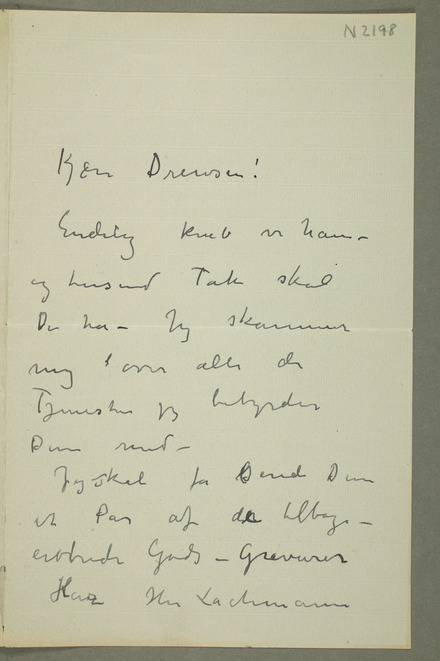 N2198
Kjære Drewsen!
Endelig kneb vi ham –
og tusend Tak skal
De ha – Jeg skammer
mig over alle de
Tjenester jeg bebyrder
Dem med –
Jeg skal få sende Dem
et Par af de tilbage –
erobrede Gods – Gravurer
Har Hr Lachmann